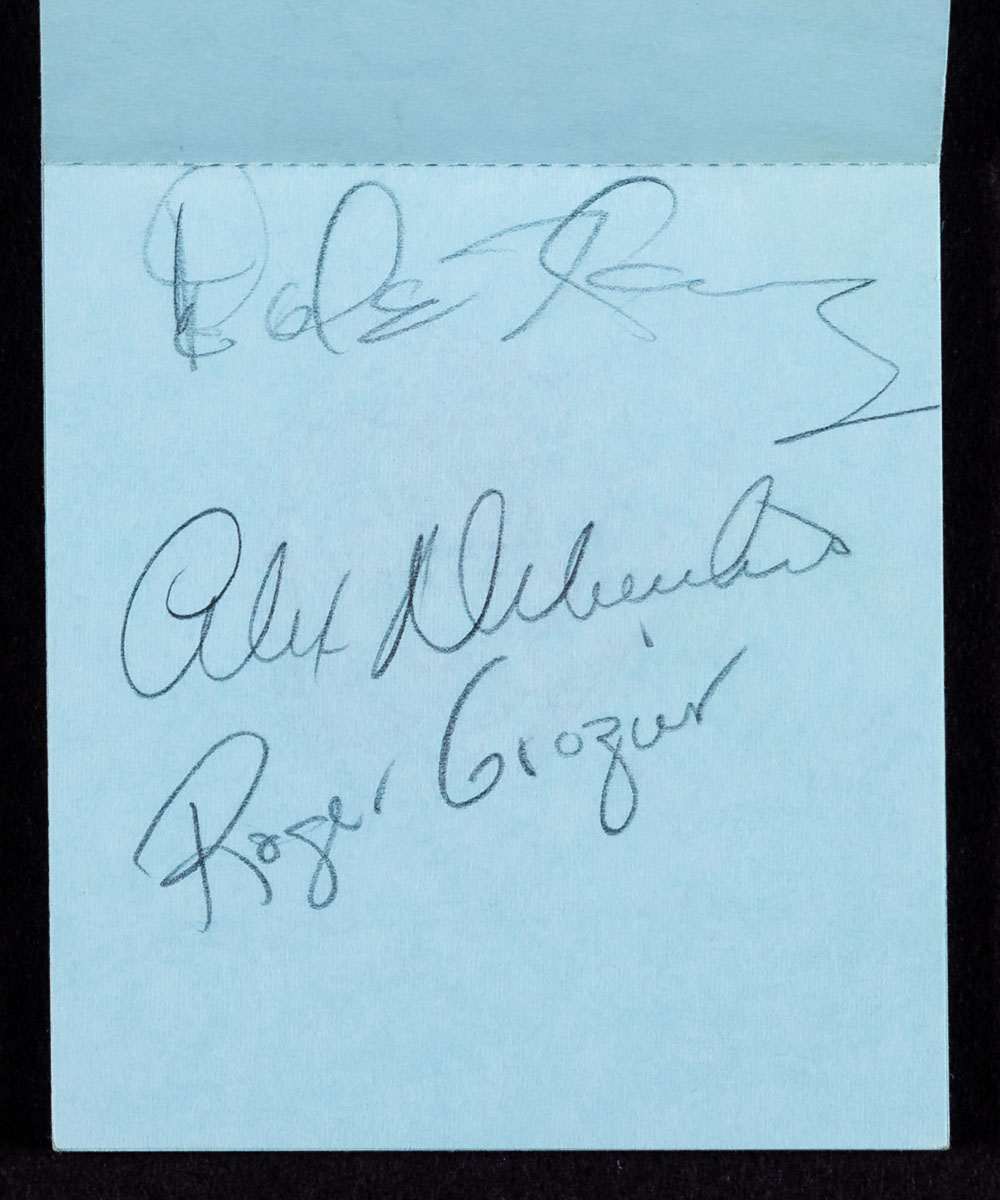 Alex Delvecchio
Roger Crozier